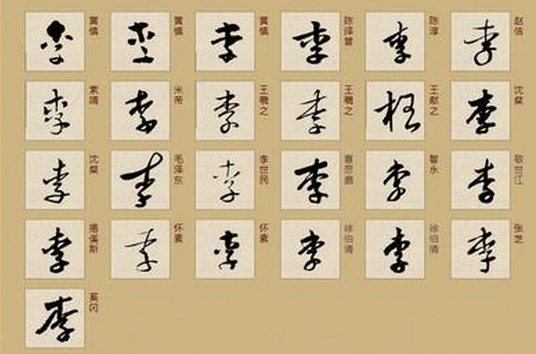 李 黄慎 李 黄慎 李 黄慎 李 陈泽萱 李 陈淳 李 赵佶
李 索靖 李 米芾 李 王羲之 李 王羲之 李 王献之 李 沈粲
李 沈粲 李 毛泽东 李 李世民 李 李 智永 李 敬世江
李 揭傒斯 李 怀素 李 怀素 李 徐伯清 李 徐伯清 李 张芝
李 奚冈